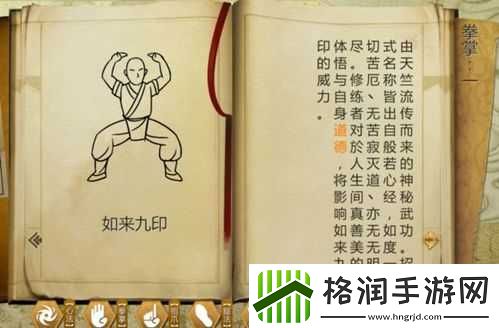 拳掌：一
由天竺流传而来的神秘武功。招
式名称皆出自般若心经、如度一
切苦厄、无苦寂灭道、亦无无明
尽。修练者对於人生间真善美的
体悟与自身道德，将影响如来九
印的威力。
如来九印
格润手游网
www.hngrjd.com